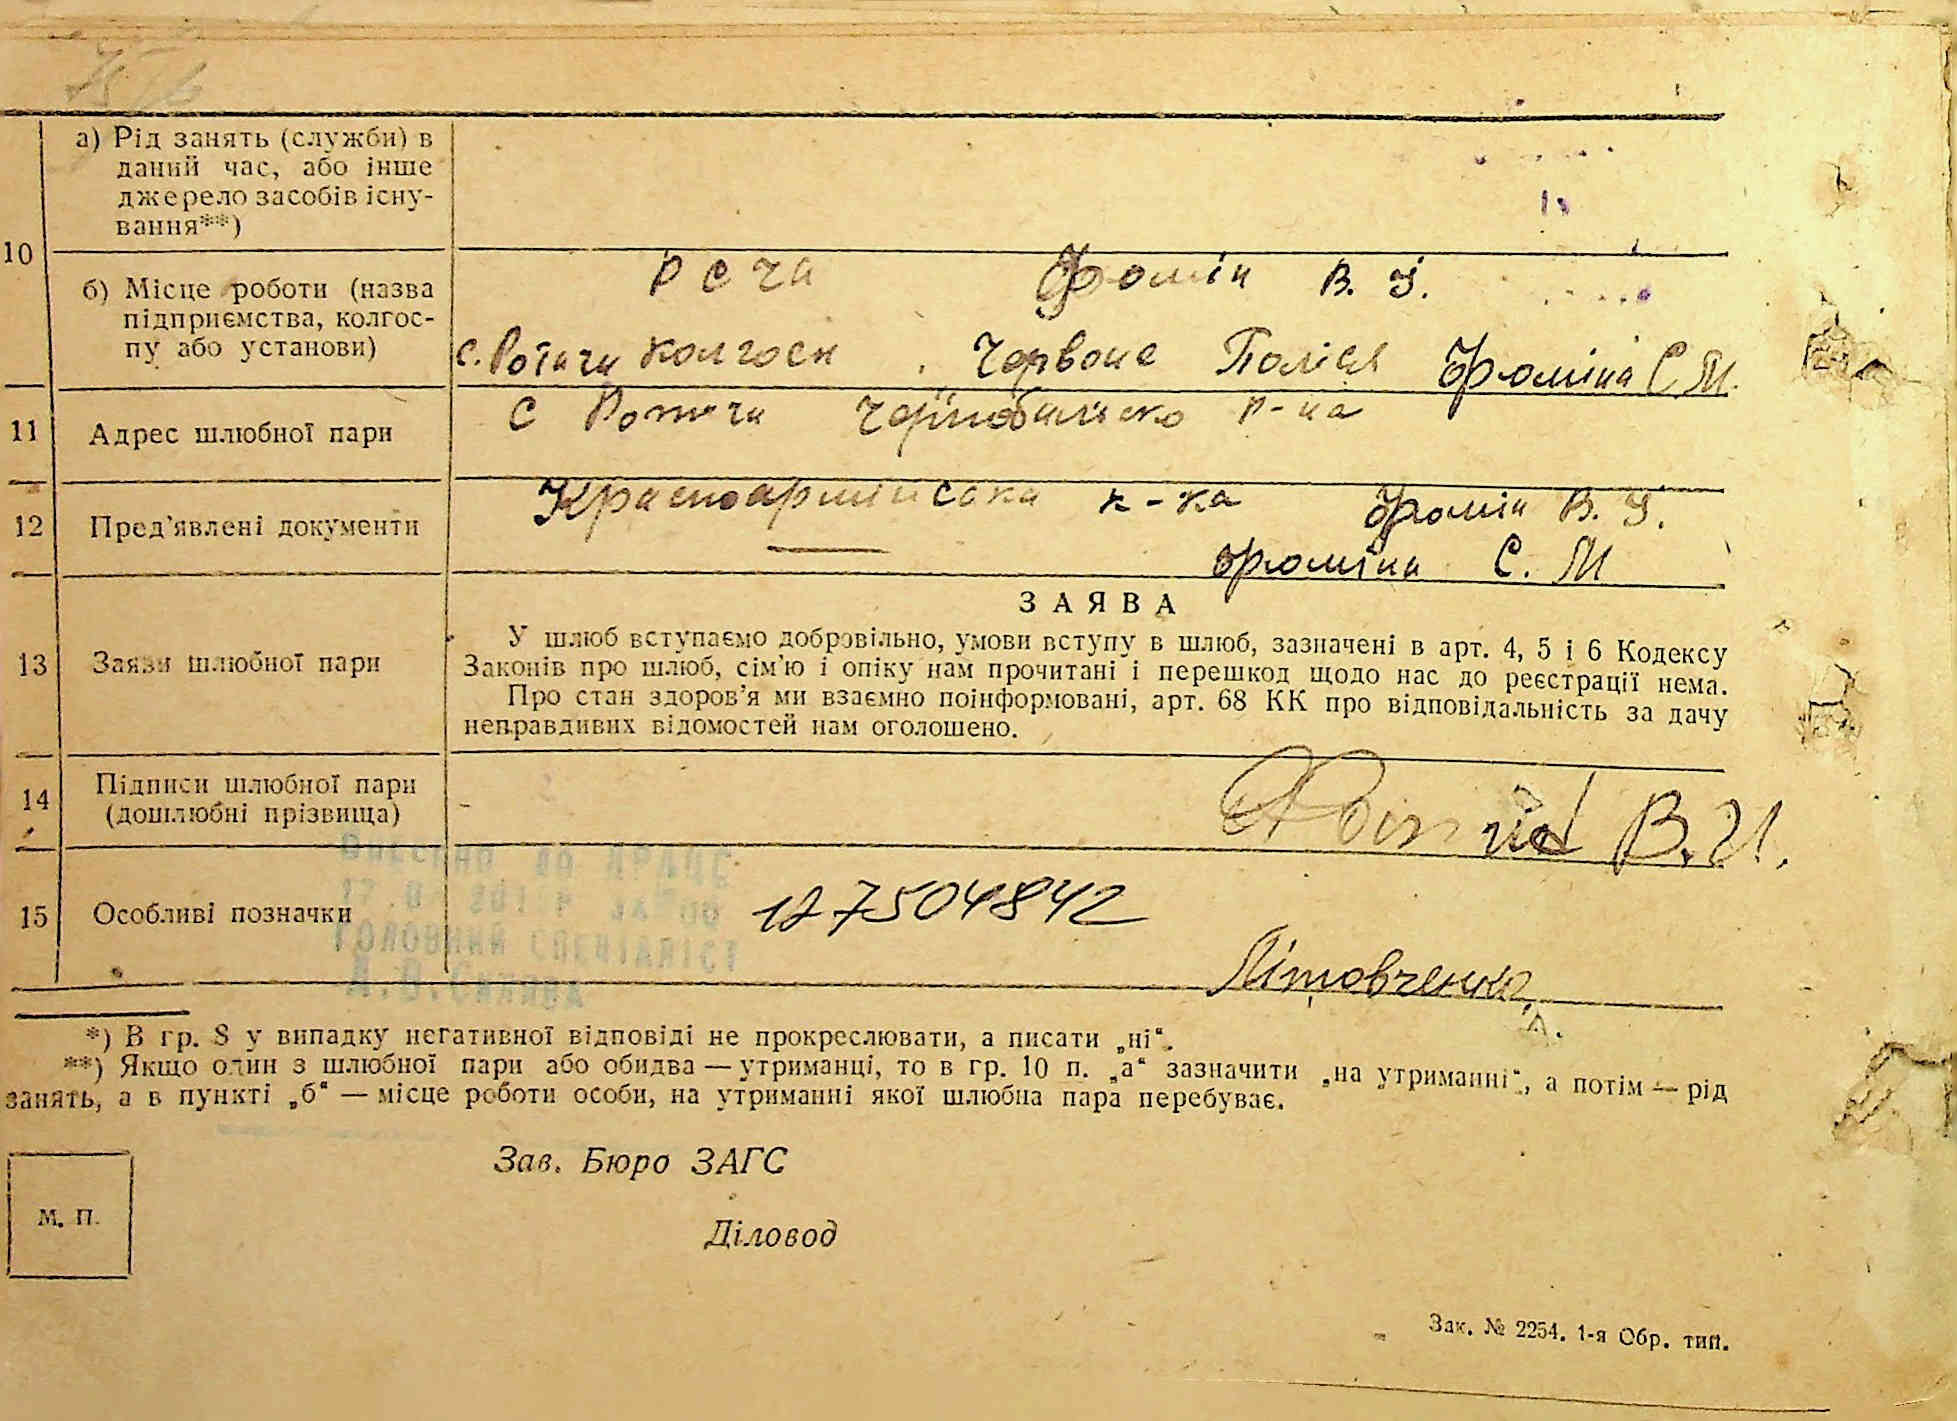 а) Рід занять (служби) в
даний час, або інше
джерело засобів існу-
вання**)
10
б) Місце роботи (назва
підприємства, колгос-
пу або установи)
РСЧА Фомін В. І.
с. Ротичи колгосп Червоне Полісся Фоміна С М.
11
Адрес шлюбної пари
С Ротичи р-на
12
Пред'явлені документи
Красноармійська к-ка Фомін В. І.
Фоміна С. М
13
Заяви шлюбної пари
ЗАЯВА
У шлюб вступаємо добровільно, умови вступу в шлюб, зазначені в арт. 4, 5 і 6 Кодексу
Законів про шлюб, сім'ю і опіку нам прочитані і перешкод щодо нас до реєстрації нема.
Про стан здоров'я ми взаємно поінформовані, арт. 68 КК про відповідальність за дачу
неправдивих відомостей нам оголошено.
14
Підписи шлюбної пари
(дошлюбні прізвища)
В. И.
15
Особливі позначки
127504842
Внесено до ДРАЦС
ГОЛОВНИЙ СПЕЦІАЛІСТ
Літовченко
*) В гр. 8 у випадку негативної відповіді не прокреслювати, а писати „ні“.
**) Якщо один з шлюбної пари або обидва — утриманці, то в гр. 10 п. „а“ зазначити „на утриманні“, а потім — рід
занять, а в пункті „б“ — місце роботи особи, на утриманні якої шлюбна пара перебуває.
Зав. Бюро ЗАГС
М. П.
Діловод
Зак. № 2254. 1-я Обр. тип.